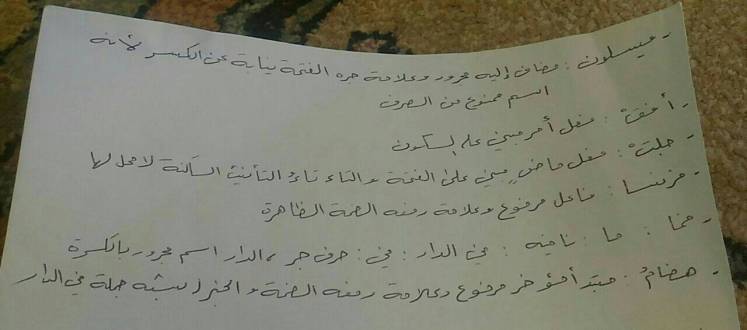 - ميسلون : مضاف إليه مجرور وعلامة جره الفتحة نيابة عن الكسر لأنه
اسم ممنوع من الصرف
- أضف : فعل أمر مبني على السكون
- جلت : فعل ماض مبني على الفتحة والتاء تاء التأنيث الساكنة لا محل لها
- فرنسا : فاعل مرفوع وعلامة رفعه الضمة الظاهرة
- ما : نافيه : في الدار : في : حرف جر ، الدار اسم مجرور بالكسرة
- هضام : مبتدأ مؤخر مرفوع وعلامة رفعه الضمة والخبر ( شبه جملة في الدار